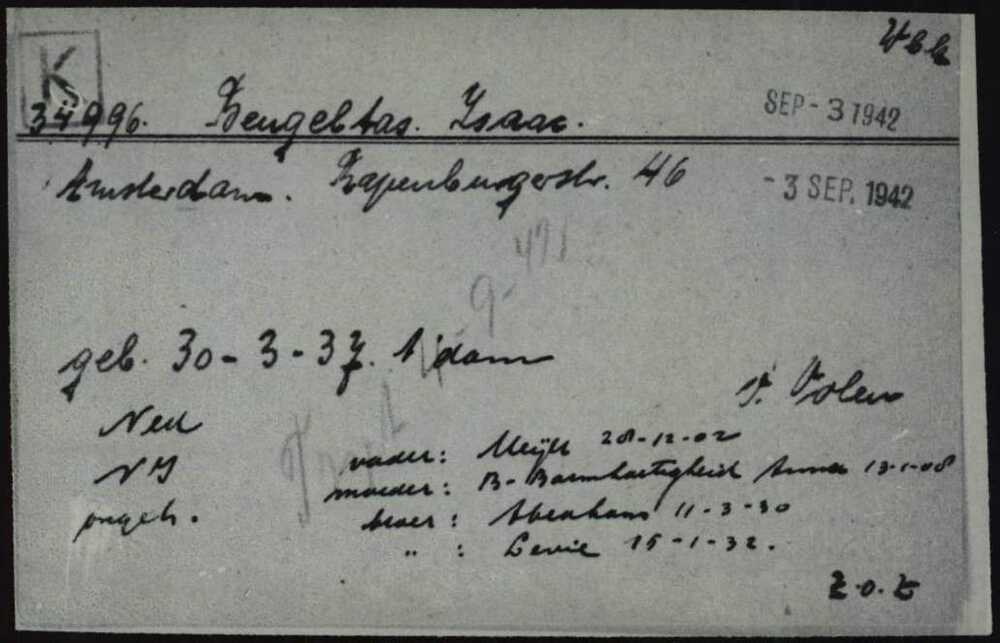 K
34996. Beugeltas. Isaac.
SEP - 3 1942
Amsterdam. Rapenburgerstr. 46
- 3 SEP. 1942
9-
geb. 30-3-37. A'dam
Ned
NI
ongeh.
vader: Meijer 28-12-02
moeder: B- Barmhartigheid Anna 13-1-08
broer: Abraham 11-3-30
" : Levie 15-1-32.
z.o.z